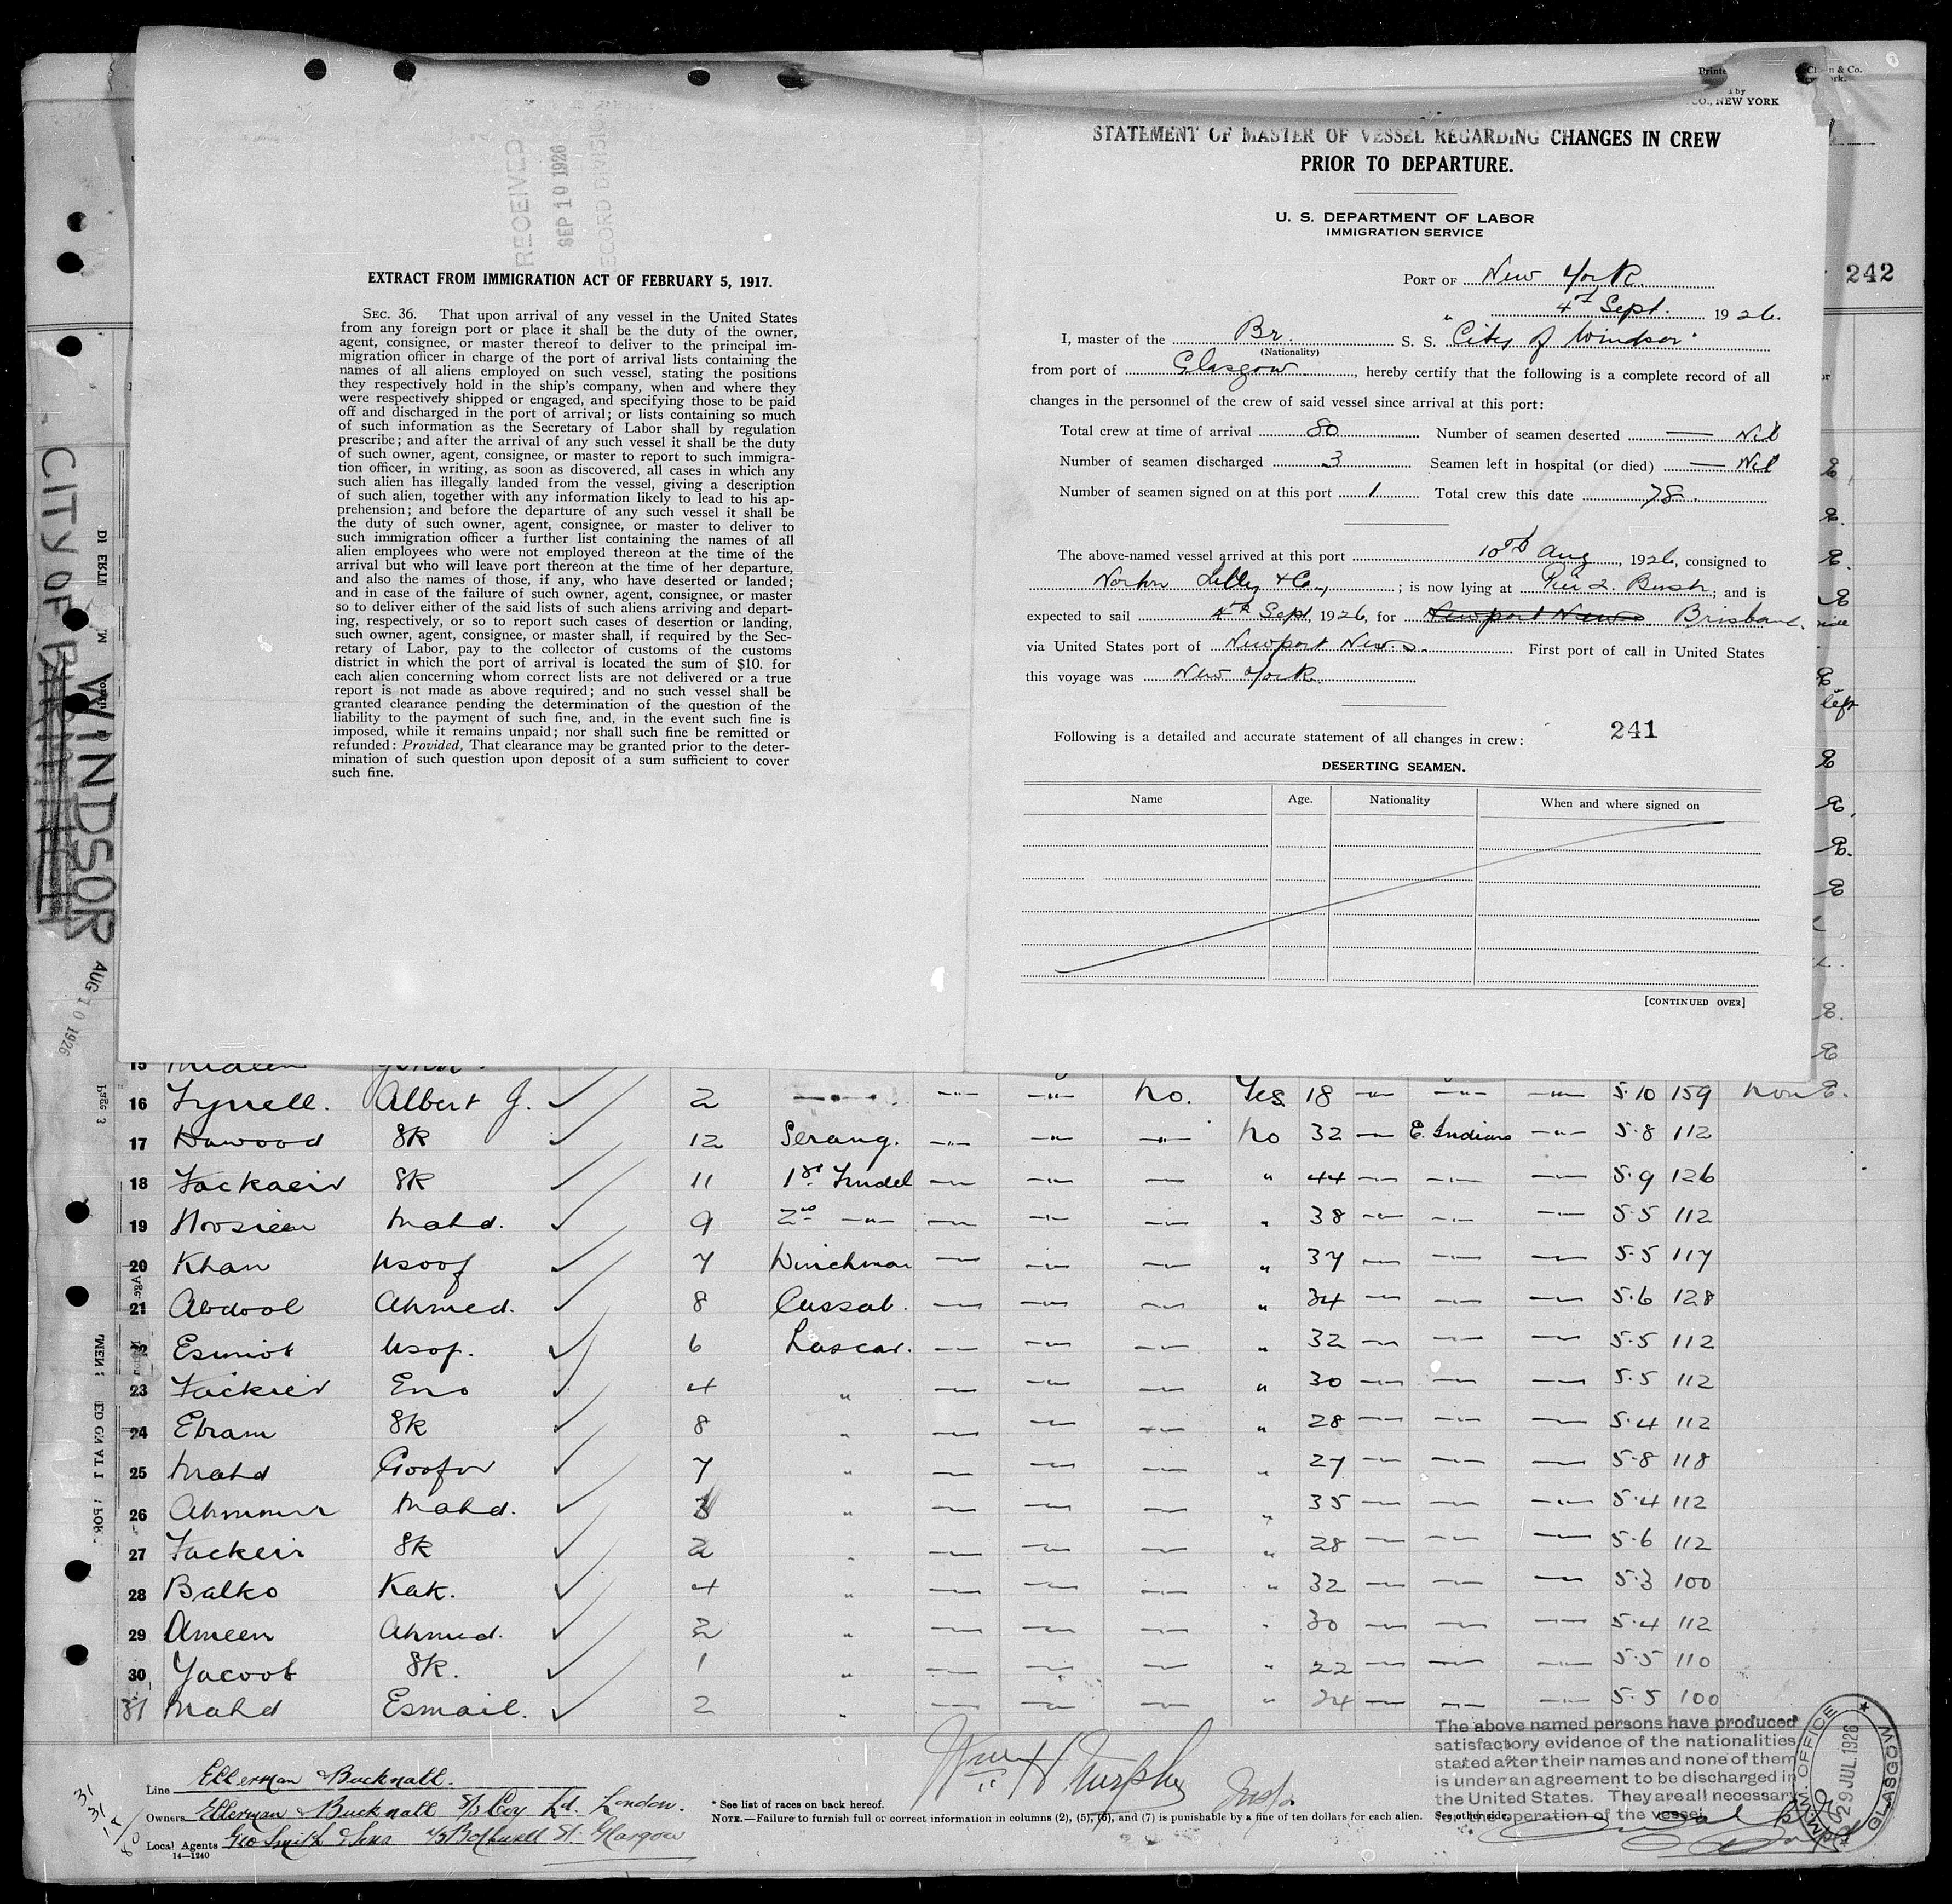 RECEIVED
SEP 10 1926
RECORD DIVISION
EXTRACT FROM IMMIGRATION ACT OF FEBRUARY 5, 1917.
SEC. 36. That upon arrival of any vessel in the United States
from any foreign port or place it shall be the duty of the owner,
agent, consignee, or master thereof to deliver to the principal im-
migration officer in charge of the port of arrival lists containing the
names of all aliens employed on such vessel, stating the positions
they respectively hold in the ship's company, when and where they
were respectively shipped or engaged, and specifying those to be paid
off and discharged in the port of arrival; or lists containing so much
of such information as the Secretary of Labor shall by regulation
prescribe; and after the arrival of any such vessel it shall be the duty
of such owner, agent, consignee, or master to report to such immigra-
tion officer, in writing, as soon as discovered, all cases in which any
such alien has illegally landed from the vessel, giving a description
of such alien, together with any information likely to lead to his ap-
prehension; and before the departure of any such vessel it shall be
the duty of such owner, agent, consignee, or master to deliver to
such immigration officer a further list containing the names of all
alien employees who were not employed thereon at the time of the
arrival but who will leave port thereon at the time of her departure,
and also the names of those, if any, who have deserted or landed;
and in case of the failure of such owner, agent, consignee, or master
so to deliver either of the said lists of such aliens arriving and depart-
ing, respectively, or so to report such cases of desertion or landing,
such owner, agent, consignee, or master shall, if required by the Sec-
retary of Labor, pay to the collector of customs of the customs
district in which the port of arrival is located the sum of $10. for
each alien concerning whom correct lists are not delivered or a true
report is not made as above required; and no such vessel shall be
granted clearance pending the determination of the question of the
liability to the payment of such fine, and, in the event such fine is
imposed, while it remains unpaid; nor shall such fine be remitted or
refunded: Provided, That clearance may be granted prior to the deter-
mination of such question upon deposit of a sum sufficient to cover
such fine.
CO., NEW YORK
STATEMENT OF MASTER OF VESSEL REGARDING CHANGES IN CREW
PRIOR TO DEPARTURE.
U. S. DEPARTMENT OF LABOR
IMMIGRATION SERVICE
PORT OF New York
4th Sept. 1926.
242
I, master of the Br. S. S. City of Windsor
(Nationality)
from port of Glasgow, hereby certify that the following is a complete record of all
changes in the personnel of the crew of said vessel since arrival at this port:
Total crew at time of arrival 80 Number of seamen deserted — Nil
Number of seamen discharged 3 Seamen left in hospital (or died) — Nil
Number of seamen signed on at this port 1 Total crew this date 78.
The above-named vessel arrived at this port 10th Aug, 1926, consigned to
Norton Lilly & Co; is now lying at Pier 2 Bush; and is
expected to sail 4th Sept, 1926, for Newport News Brisbane.
via United States port of Newport News. First port of call in United States
this voyage was New York.
Following is a detailed and accurate statement of all changes in crew:
241
DESERTING SEAMEN.
Name Age. Nationality When and where signed on
[CONTINUED OVER]
CITY OF WINDSOR
AUG 10 1926
15
16 Tyrrell. Albert J. 2 —"— —"— —"— No. Yes 18 —"— —"— —"— 5.10 159
17 Dawood SK 12 Serang. —"— —"— —"— No 32 —"— E. Indians —"— 5.8 112
18 Fackaeir SK 11 1st Tindel — — — " 44 — — — 5.9 126
19 Hoosieen Mahd. 9 2nd —"— — — — " 38 — — — 5.5 112
20 Khan Usoof 7 Winchman — — — " 37 — — — 5.5 117
21 Abdool Ahmed. 8 Cassab. — — — " 34 — — — 5.6 128
22 Esmiot Usop. 6 Lascar. — — — " 32 — — — 5.5 112
23 Fackeir Eno 4 " — — — " 30 — — — 5.5 112
24 Ebram SK 8 " — — — " 28 — — — 5.4 112
25 Mahd Goofor 7 " — — — " 27 — — — 5.8 118
26 Ahmmir Mahd. 3 " — — — " 35 — — — 5.4 112
27 Fackeir SK 2 " — — — " 28 — — — 5.6 112
28 Balko Kak. 4 " — — — " 32 — — — 5.3 100
29 Ameen Ahmed. 2 " — — — " 30 — — — 5.4 112
30 Yacoob SK. 1 " — — — " 22 — — — 5.5 110
31 Mahd Esmail. 2 " — — — " 24 — — — 5.5 100
The above named persons have produced
satisfactory evidence of the nationalities
stated after their names and none of them
is under an agreement to be discharged in
the United States. They are all necessary
for the operation of the vessel
IMM. OFFICE
29 JUL 1926
GLASGOW
Line Ellerman Bucknall.
Owners Ellerman & Bucknall S/S Coy Ld. London.
Local Agents Geo Smith & Sons 75 Bothwell St. Glasgow
14—1240
Wm H Murphy
* See list of races on back hereof.
NOTE.—Failure to furnish full or correct information in columns (2), (5), (6), and (7) is punishable by a fine of ten dollars for each alien. See other side.